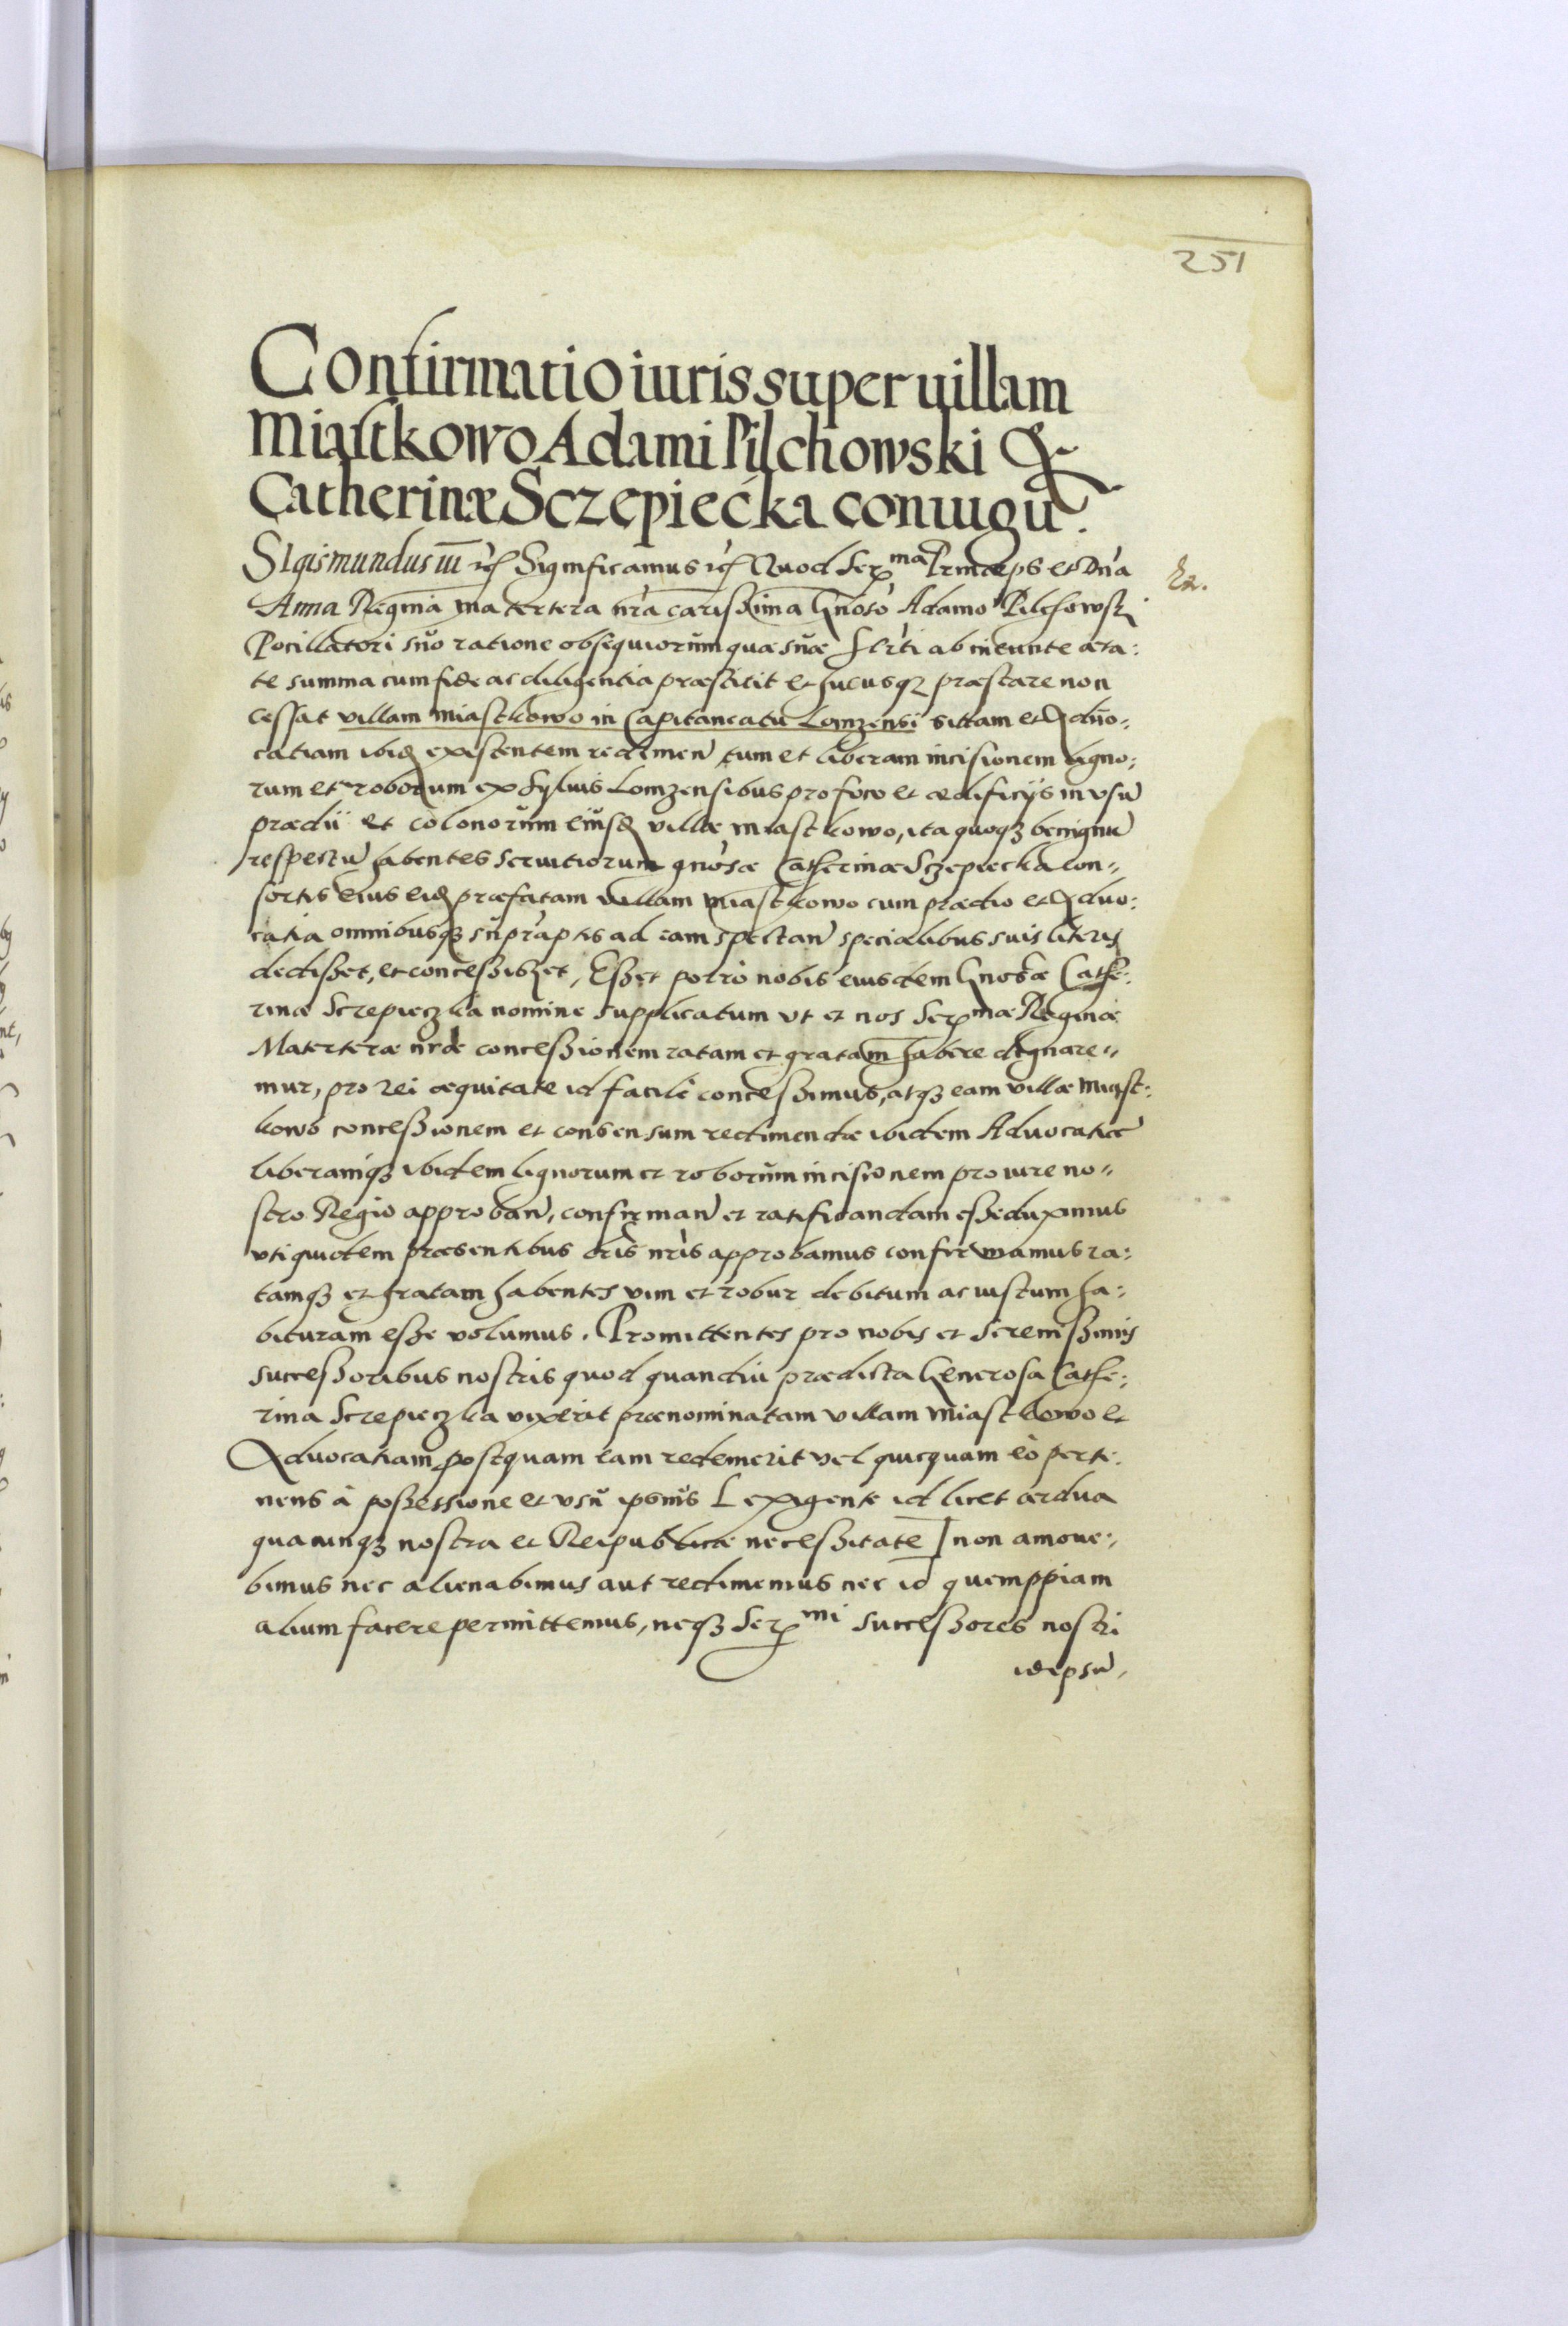 251
Confirmatio iuris super uillam
Miastkowo Adami Pilchowski &
Catherinæ Sczepiećka coniugũ.
Sigismundus iii etc Significamus etc Quod Ser^ma Princeps et Dn̄a
Anna Regina matertera nr̄a carissima Gn̄oso Adamo Pilchowski
Pocillatori suo ratione obsequiorum quæ suæ Sert̄i ab ineunte æta:
te summa cum fide ac diligentia præstitit et hucusqȝ præstare non
cessat villam Miastkowo in Capitaneatu Lomzensi sittam et Aduo:
catiam ibid existentem redimen̄ tum et liberam incisionem ligno:
rum et roborum ex syluis Lomzensibus pro foco et ædificijs in vsũ
prædii et colonorum eiusd villæ Miastkowo, ita quoqȝ benignũ
respectũ habentes seruitiorum gn̄osæ Catherinæ Sczepiecka con„
sortis eius eid præfatam villam Miastkowo cum prædio et Aduo:
catia omnibusqȝ supraptis ad eam spectan̄ specialibus suis literis
dedisset, et concessisset, Esset porrò nobis eiusdem Gnosæ Cathe:
rinæ Screpieczka nomine supplicatum vt et nos Ser^mæ Reginæ
Materteræ nr̄æ concessionem ratam et gratam habere dignare„
mur, pro rei æquitate id facilè concessimus, atqȝ eam villæ Miast:
kowo concessionem et consensum redimendæ ibidem Aduocatiæ
liberamqȝ ibidem lignorum et roborum incisionem pro iure no„
stro Regio approban̄, confirman̄ et ratificandam esse duximus
vti quidem præsentibus lr̄is nr̄is approbamus confirmamus ra:
tamqȝ et gratam habentes vim et robur debitum ac iustum ha:
bituram esse volumus. Promittentes pro nobis et Serenissimis
successoribus nostris quod quandiu prædicta Generosa Cathe:
rina Screpieczka vixerit prænominatam villam Miastkowo et
Aduocatiam postquam eam redemerit vel quicquam eò perti:
nens à possessione et vsu ipsius [exigente id licet ardua
quacunqȝ nostra et Reipublicæ necessitate] non amoue:
bimus nec alienabimus aut redimemus nec id quemppiam
alium facere permittemus, neqȝ Ser^mi successores nostri
id ipsũ,